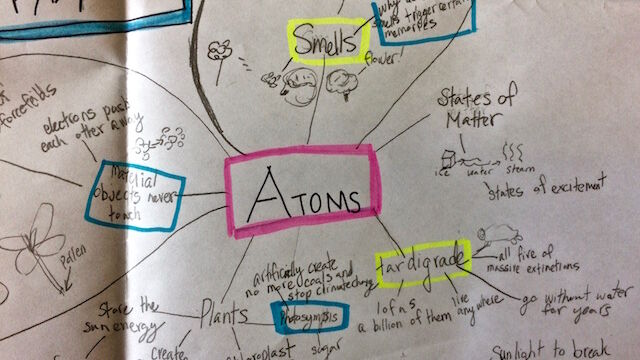 why do
smells trigger certain
memories
Smells
flower!
forcefields
electrons push
each other away
Material
objects never
touch
ATOMS
States of
Matter
ice
water
steam
states of excitement
Pollen
artificially create
no more coals and
stop climate chang
tardigrade
all five of
massive extinctions
1 of n s
a billion of them
live
any where
go without water
for years
Store the
sun energy
Plants
Photosympsis
sugar
creates
chloroplast
Sunlight to break